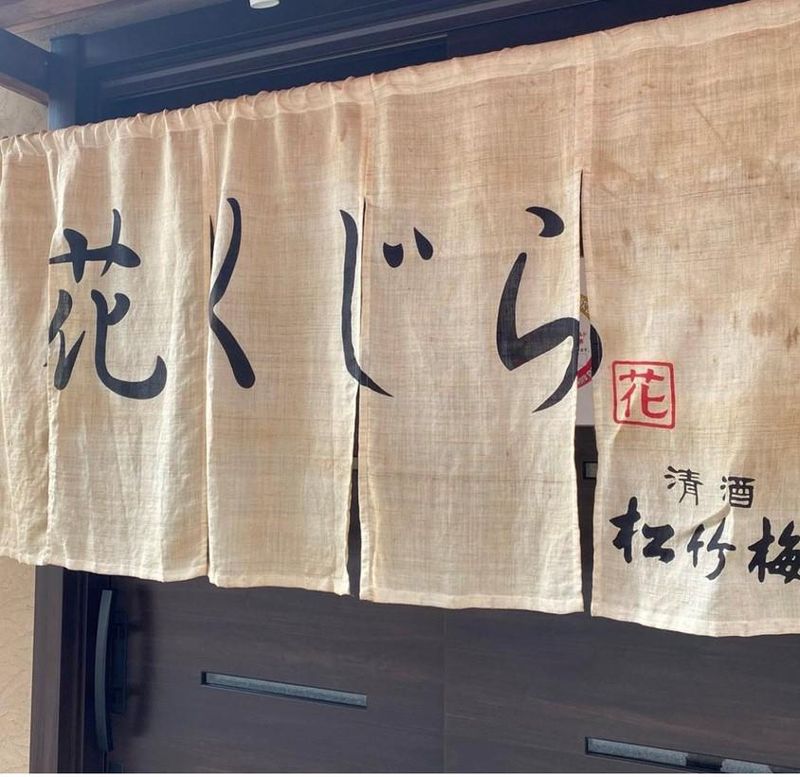 花くじら
花
清酒
松竹梅